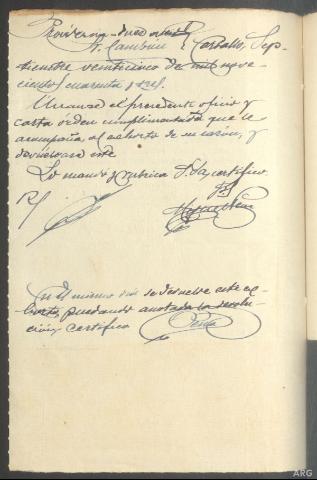 Providencia
Carballo, Sep-
tiembre veinticinco de mil nove-
cientos cuarenta y tres.
Únanse el precedente oficio y
carta orden cumplimentada que le
acompaña, al exhorto de su razón, y
devuélvase éste
Lo mandó y rubrica S.Sª, certifico.
R/
En el mismo día se devuelve este ex-
horto, quedando anotada la resolu-
ción; certifico
ARG